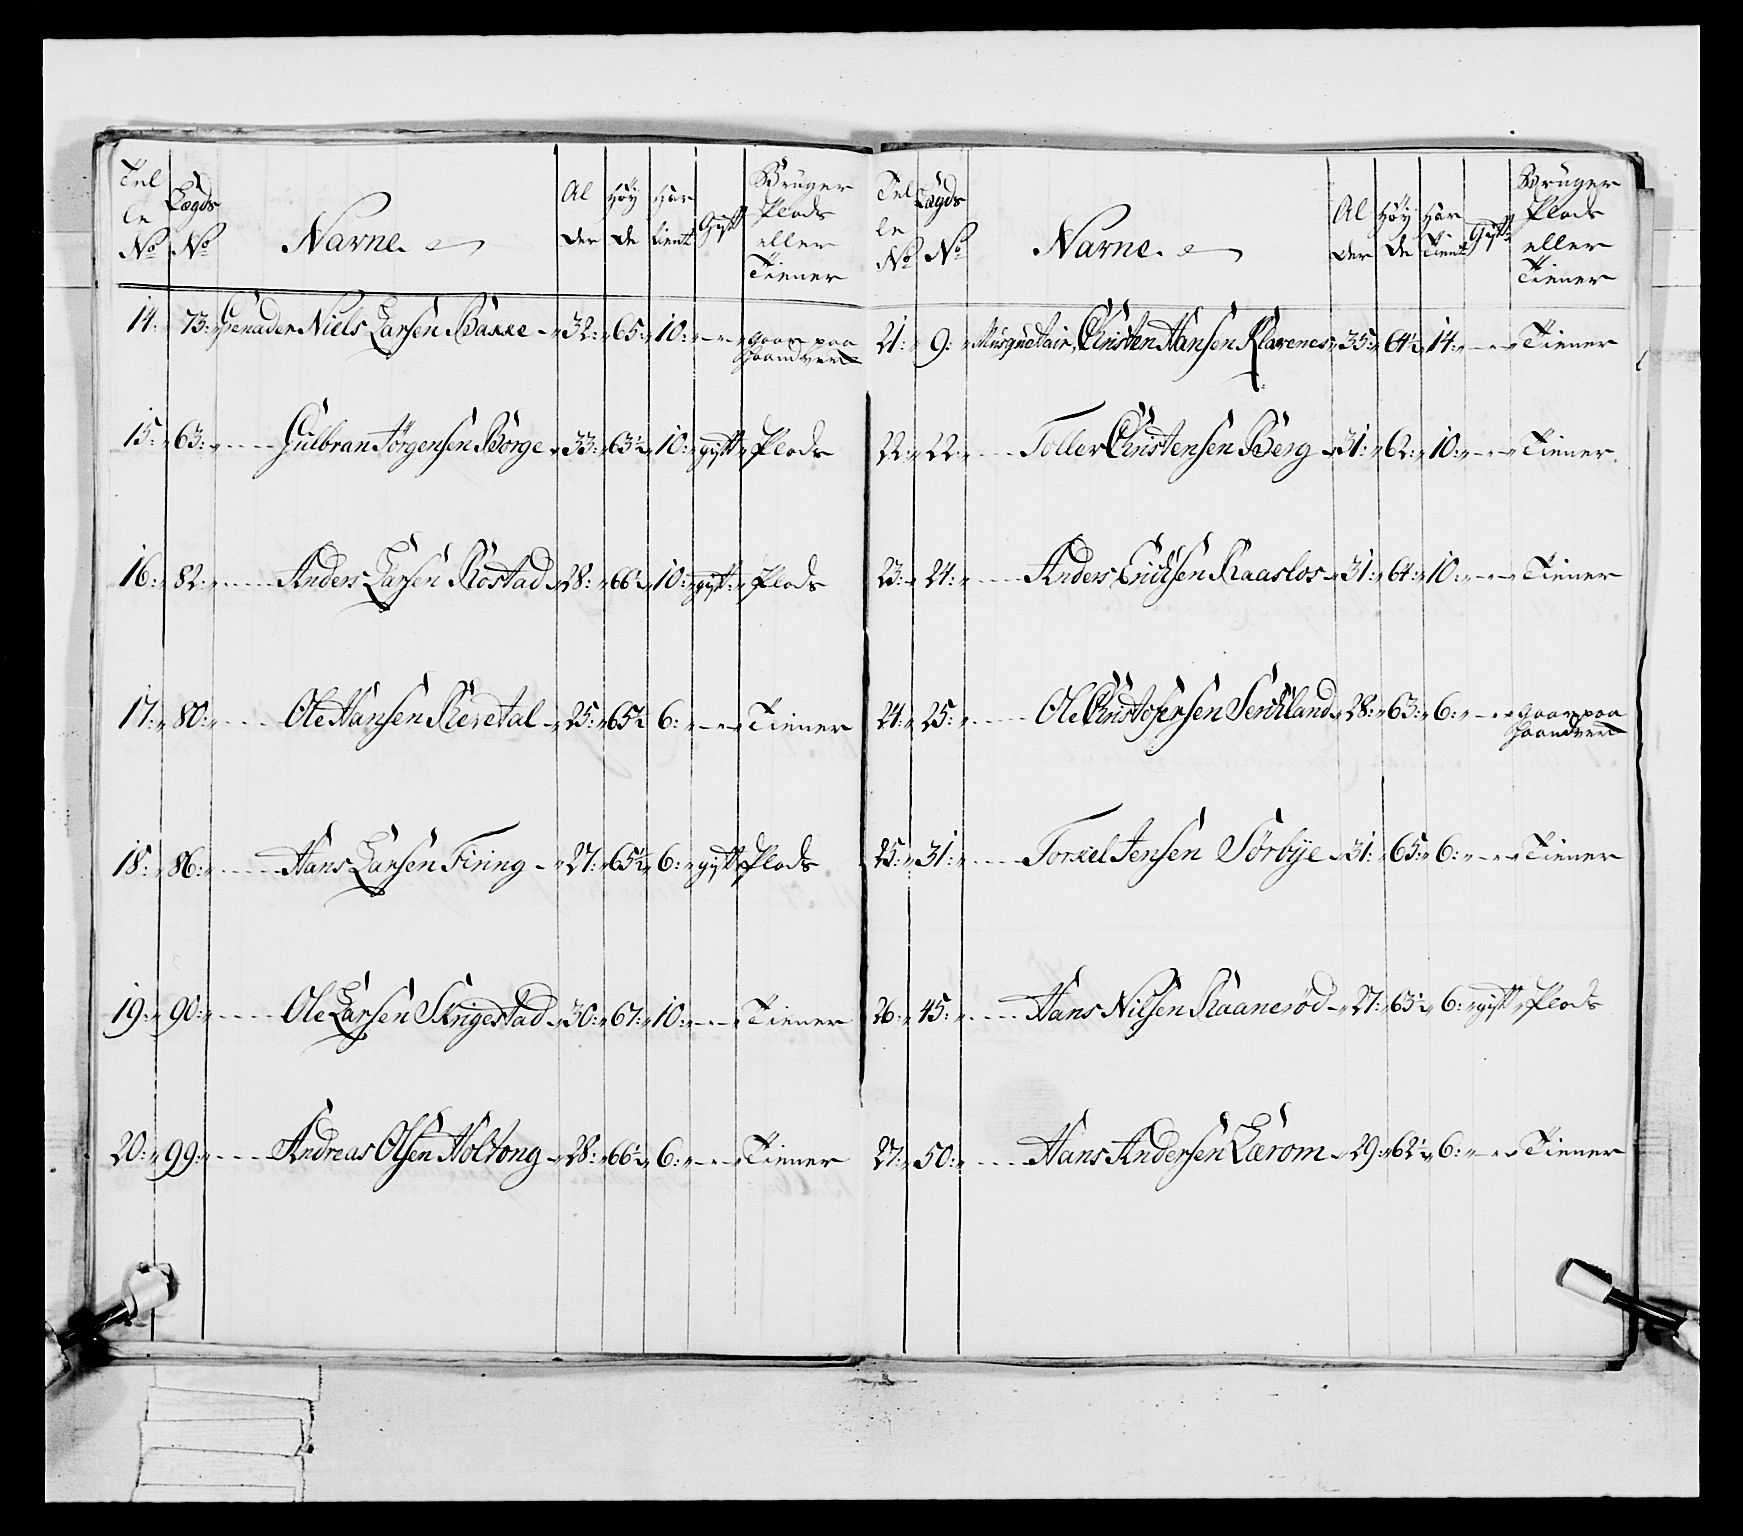 Tel le No | Lægds No | Navne. | Al der | Høy de | Har tient | Gift | Bruger Plads eller Tiener
14: 73: Grenader Niels Larsen Bakke 32: 65: 10: -- gaar paa Haandverk
15: 63: Gulbran Jörgensen Borge 33: 63½ 10: gift Plads
16: 82: Anders Larsen Röstad 28: 66½ 10: gift: Plads
17: 80: Ole Hansen Reretal 25: 65½ 6: -- Tiener
18: 86: Hans Larsen Firing 27: 65½ 6: gift Plads
19: 90: Ole Larsen Skrigestad 30: 67: 10: -- Tiener
20: 99: Andreas Olsen Holtong 28: 66½ 6: -- Tiener
Tel le No | Lægds No | Navne. | Al der | Høy de | Har Tient | Gift | Bruger Plads eller Tiener
21: 9: Musquetair, Christen Hansen Klavenes 35: 64½ 14: -- Tiener
22: 22: Toller Christensen Berg 31: 62: 10: -- Tiener
23: 24: Anders Erichsen Raaslos 31: 64: 10: -- Tiener
24: 25: Ole Christofersen 28: 63: 6: -- gaar paa Haandverk
25: 31: Torkel Jensen Sörbye 31: 65: 6: -- Tiener
26: 45: Hans Nilsen Raaneröd 27: 63½ 6: gift Plads
27: 50: Hans Andersen Lærom 29: 62½ 6: -- Tiener